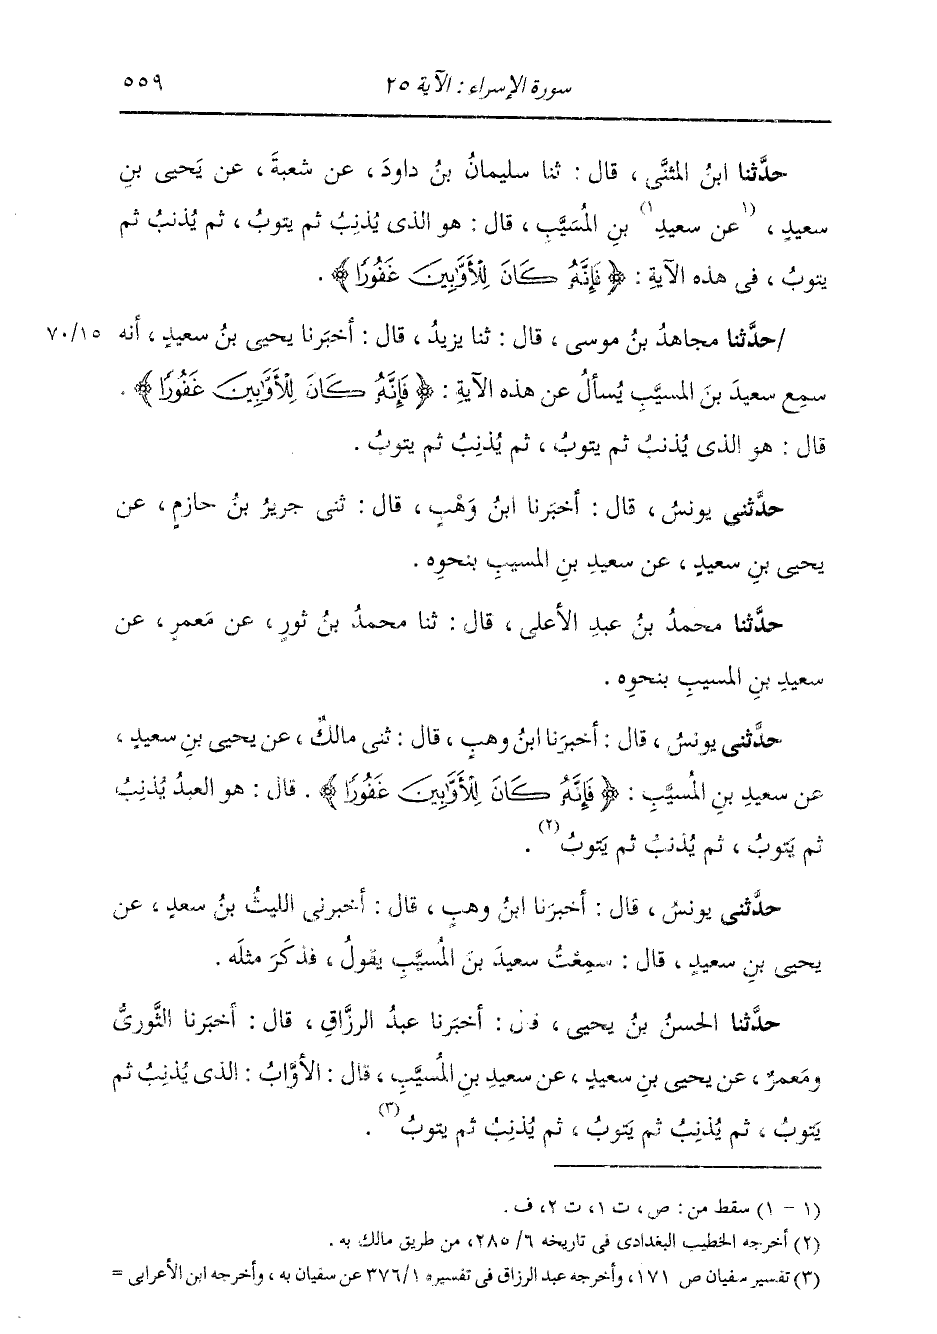 سورة الإسراء : الآية ٢٥
٥٥٩
حدَّثنا ابنُ المثنَّى ، قال : ثنا سليمانُ بنُ داودَ ، عن شعبةَ ، عن يَحيى بنِ
سعيدٍ ، <sup>(١</sup>عن سعيدِ<sup>١)</sup> بنِ المُسَيَّبِ ، قال : هو الذى يُذنِبُ ثم يتوبُ ، ثم يُذنبُ ثم
يتوبُ ، فى هذه الآيةِ : ﴿ فَإِنَّهُ كَانَ لِلْأَوَّابِينَ غَفُورًا ﴾ .
/حدَّثنا مجاهدُ بنُ موسى ، قال : ثنا يزيدُ ، قال : أخبَرنا يحيى بنُ سعيدٍ ، أنه ٧٠/١٥
سمِع سعيدَ بنَ المسيَّبِ يُسألُ عن هذه الآيةِ : ﴿ فَإِنَّهُ كَانَ لِلْأَوَّابِينَ غَفُورًا ﴾ .
قال : هو الذى يُذنبُ ثم يتوبُ ، ثم يُذنِبُ ثم يتوبُ .
حدَّثنى يونسُ ، قال : أخبَرنا ابنُ وَهْبٍ ، قال : ثنى جريرُ بنُ حازمٍ ، عن
يحيى بنِ سعيدٍ ، عن سعيدِ بنِ المسيبِ بنحوِه .
حدَّثنا محمدُ بنُ عبدِ الأعلى ، قال : ثنا محمدُ بنُ ثورٍ ، عن مَعمرٍ ، عن
سعيدِ بنِ المسيبِ بنحوِه .
حدَّثنى يونسُ ، قال : أخبرَنا ابنُ وهبٍ ، قال : ثنى مالكٌ ، عن يحيى بنِ سعيدٍ ،
عن سعيدِ بنِ المُسيَّبِ : ﴿ فَإِنَّهُ كَانَ لِلْأَوَّابِينَ غَفُورًا ﴾ . قال : هو العبدُ يُذنِبُ
ثم يَتوبُ ، ثم يُذنبُ ثم يَتوبُ<sup>(٢)</sup> .
حدَّثنى يونسُ ، قال : أخبرَنا ابنُ وهبٍ ، قال : أخبرنى الليثُ بنُ سعدٍ ، عن
يحيى بنِ سعيدٍ ، قال : سمِعْتُ سعيدَ بنَ المُسيَّبِ يقولُ ، فذكَرَ مثلَه .
حدَّثنا الحسنُ بنُ يحيى ، قال : أخبَرنا عبدُ الرزَّاقِ ، قال : أخبَرنا الثَّورىُّ
ومَعمرٌ ، عن يحيى بنِ سعيدٍ ، عن سعيدِ بنِ المُسيَّبِ ، قال : الأوَّابُ : الذى يُذنِبُ ثم
يَتوبُ ، ثم يُذنِبُ ثم يَتوبُ ، ثم يُذنِبُ ثم يتوبُ<sup>(٣)</sup> .
(١ - ١) سقط من : ص ، ت ١، ت ٢، ف .
(٢) أخرجه الخطيب البغدادى فى تاريخه ٦/ ٢٨٥، من طريق مالك به .
(٣) تفسير سفيان ص ١٧١، وأخرجه عبد الرزاق فى تفسيره ٣٧٦/١ عن سفيان به ، وأخرجه ابن الأعرابى =